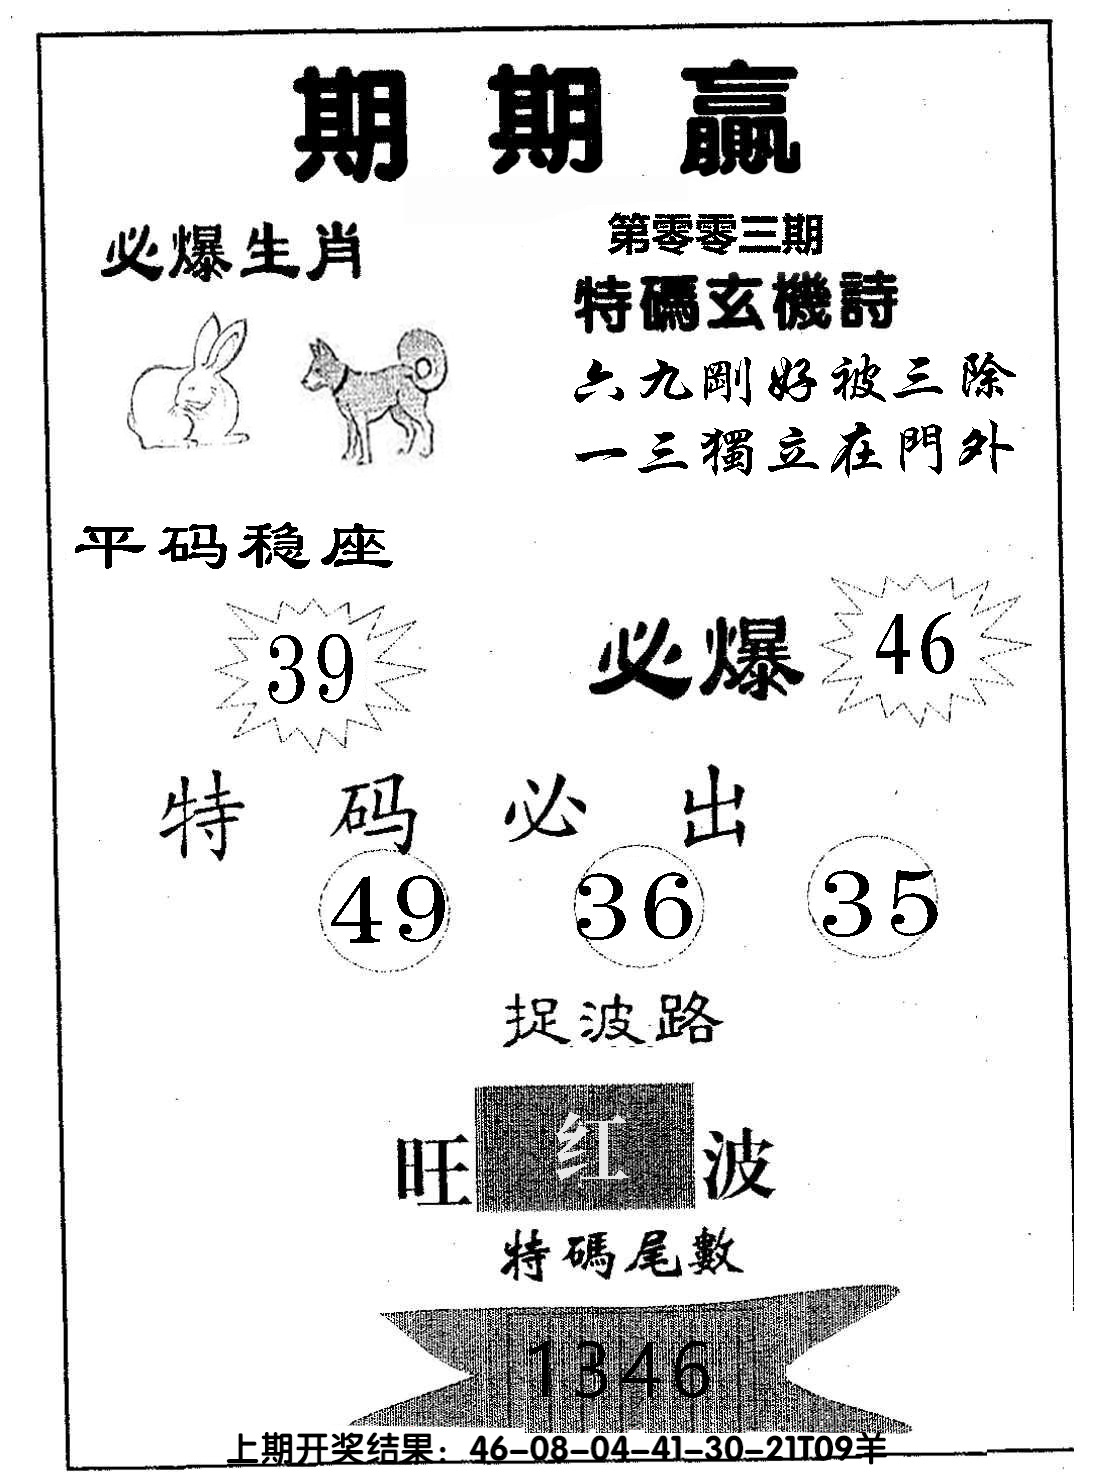 期期贏
必爆生肖
第零零三期
特碼玄機詩
六九剛好被三除
一三獨立在門外
平码稳座
39
必爆
46
特码必出
49 36 35
捉波路
旺红波
特碼尾數
1346
上期开奖结果：46-08-04-41-30-21T09羊